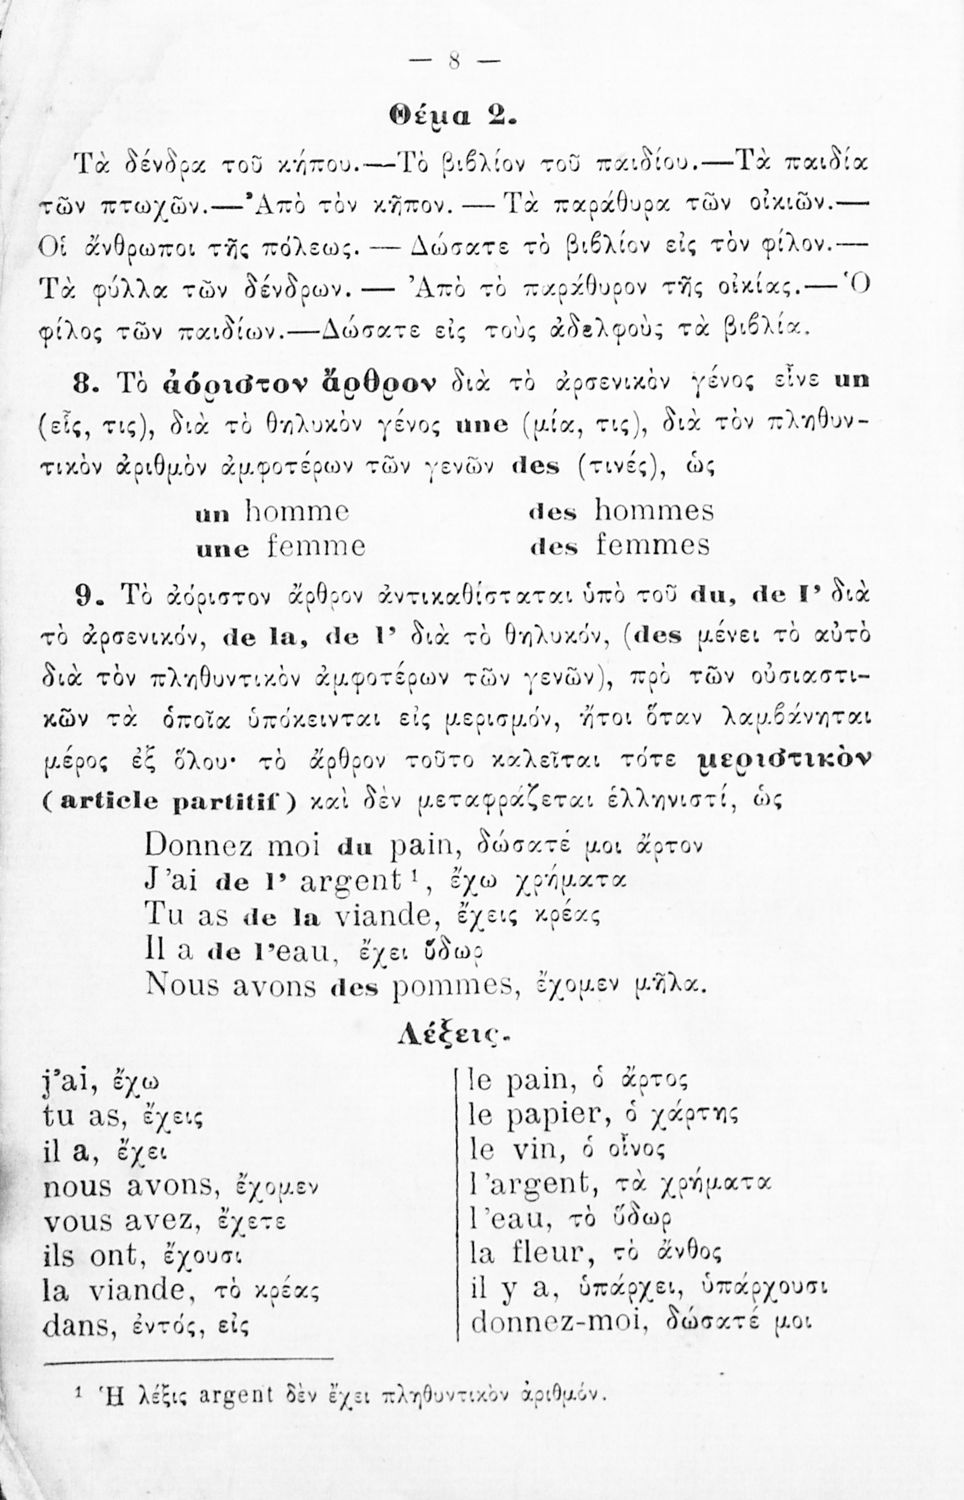 — 8 —
Θέμα 2.
Τὰ δένδρα τοῦ κήπου.—Τὸ βιβλίον τοῦ παιδίου.—Τὰ παιδία
τῶν πτωχῶν.—Ἀπὸ τὸν κῆπον. — Τὰ παράθυρα τῶν οἰκιῶν.—
Οἱ ἄνθρωποι τῆς πόλεως. — Δώσατε τὸ βιβλίον εἰς τὸν φίλον.—
Τὰ φύλλα τῶν δένδρων. — Ἀπὸ τὸ παράθυρον τῆς οἰκίας.—Ὁ
φίλος τῶν παιδίων.—Δώσατε εἰς τοὺς ἀδελφοὺς τὰ βιβλία.
8. Τὸ ἀόριστον ἄρθρον διὰ τὸ ἀρσενικὸν γένος εἶνε un
(εἷς, τις), διὰ τὸ θηλυκὸν γένος une (μία, τις), διὰ τὸν πληθυν-
τικὸν ἀριθμὸν ἀμφοτέρων τῶν γενῶν des (τινές), ὡς
un homme des hommes
une femme des femmes
9. Τὸ ἀόριστον ἄρθρον ἀντικαθίσταται ὑπὸ τοῦ du, de l’ διὰ
τὸ ἀρσενικόν, de la, de l’ διὰ τὸ θηλυκόν, (des μένει τὸ αὐτὸ
διὰ τὸν πληθυντικὸν ἀμφοτέρων τῶν γενῶν), πρὸ τῶν οὐσιαστι-
κῶν τὰ ὁποῖα ὑπόκεινται εἰς μερισμόν, ἤτοι ὅταν λαμβάνηται
μέρος ἐξ ὅλου· τὸ ἄρθρον τοῦτο καλεῖται τότε μεριστικὸν
(article partitif) καὶ δὲν μεταφράζεται ἑλληνιστί, ὡς
Donnez moi du pain, δώσατέ μοι ἄρτον
J’ai de l’ argent ¹, ἔχω χρήματα
Tu as de la viande, ἔχεις κρέας
Il a de l’eau, ἔχει ὕδωρ
Nous avons des pommes, ἔχομεν μῆλα.
Λέξεις.
j’ai, ἔχω
tu as, ἔχεις
il a, ἔχει
nous avons, ἔχομεν
vous avez, ἔχετε
ils ont, ἔχουσι
la viande, τὸ κρέας
dans, ἐντός, εἰς
le pain, ὁ ἄρτος
le papier, ὁ χάρτης
le vin, ὁ οἶνος
l’argent, τὰ χρήματα
l’eau, τὸ ὕδωρ
la fleur, τὸ ἄνθος
il y a, ὑπάρχει, ὑπάρχουσι
donnez-moi, δώσατέ μοι
¹ Ἡ λέξις argent δὲν ἔχει πληθυντικὸν ἀριθμόν.